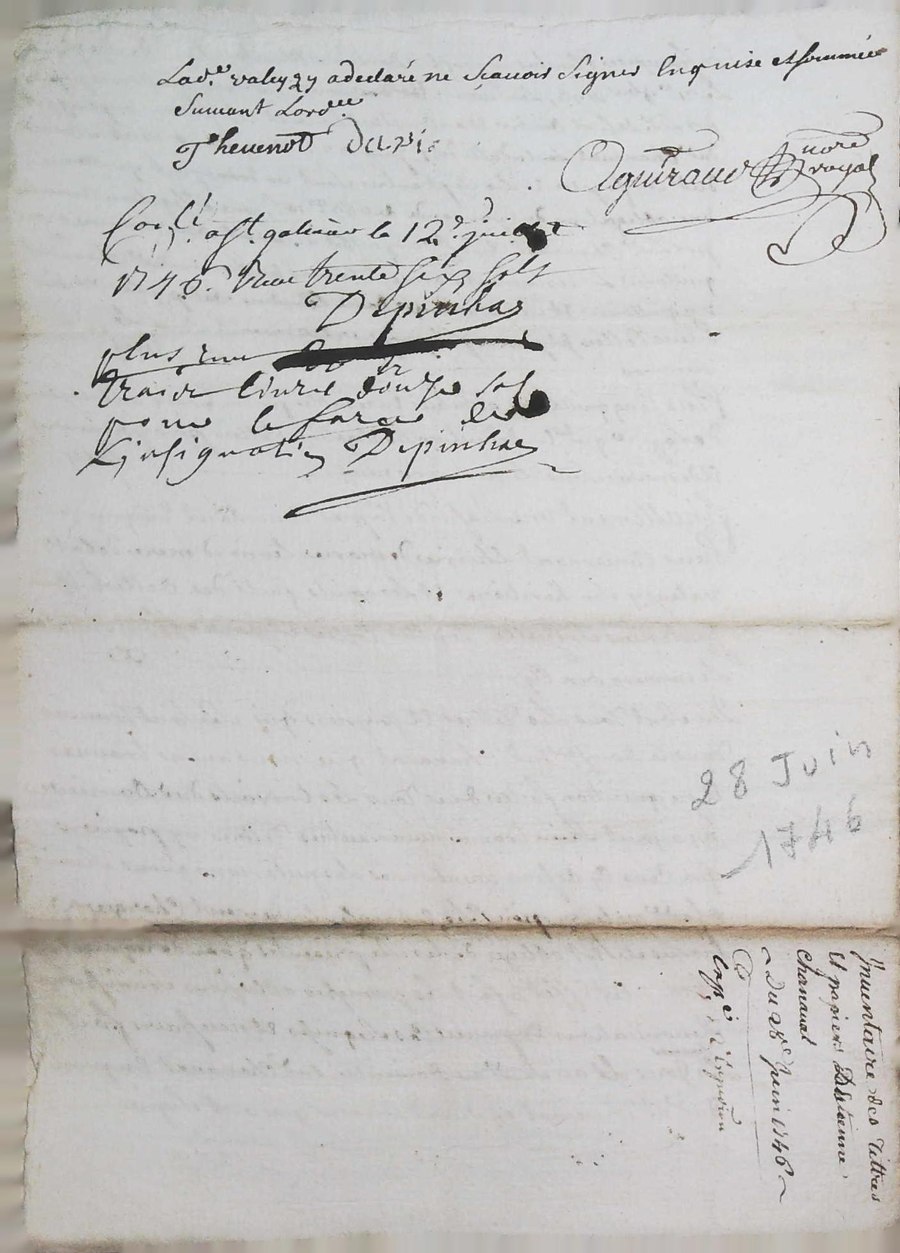 Lad.e valezy a declaré ne Scauoir Signer Enquise et sommée
Suiuant Lord.ce
Theuenot Dupin
Aguiraud no.re
royal
Con.lé a St. galmier le 12.e juillet
1746. Receu trente Six Sols
Depinhac
plus receu
trois liures douze sols
pour
L'insignuation Depinhac
28 Juin
1746
Inuentaire des tittres
Et papiers D'Estienne
Charnaual
~ Du 28.e Juin 1746 ~
Exp.é